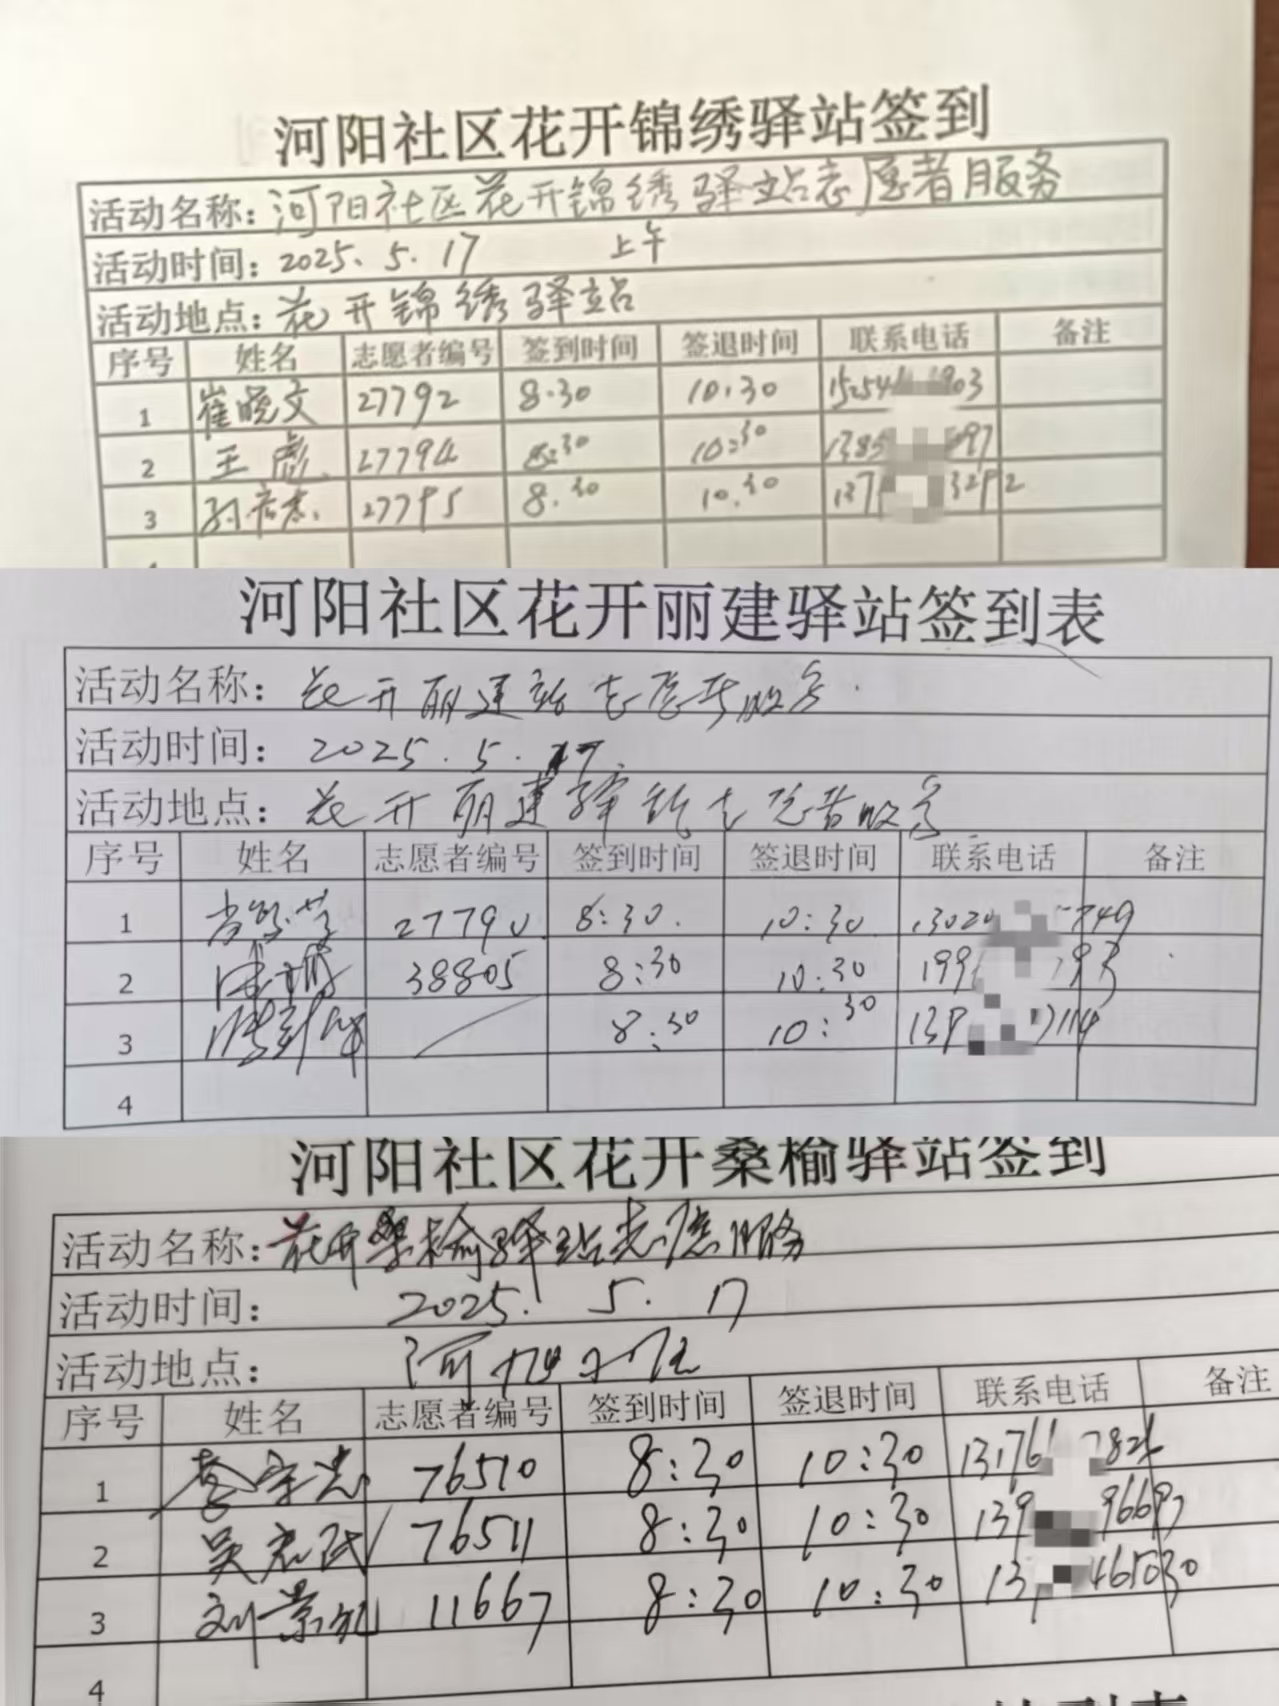 河阳社区花开锦绣驿站签到
活动名称：河阳社区花开锦绣驿站志愿者服务
活动时间：2025.5.17 上午
活动地点：花开锦绣驿站
序号 姓名 志愿者编号 签到时间 签退时间 联系电话 备注
1 崔晓文 27792 8.30 10.30 15254 903
2 王彪 27794 8:30 10:30 1385 097
3 27795 8.30 10.30 137 3292
河阳社区花开丽建驿站签到表
活动名称：花开丽建站志愿者服务
活动时间：2025.5.17
活动地点：花开丽建驿站志愿者服务
序号 姓名 志愿者编号 签到时间 签退时间 联系电话 备注
1 27790 8:30. 10:30 13020 749
2 38805 8:30 10:30 199 793
3 8:30 10:30 139 7114
4
河阳社区花开桑榆驿站签到
活动名称：花开桑榆驿站志愿服务
活动时间：2025. 5. 17
活动地点：河阳社区
序号 姓名 志愿者编号 签到时间 签退时间 联系电话 备注
1 李宗光 76510 8:30 10:30 13176 782
2 吴宏民 76511 8:30 10:30 139 96697
3 刘景礼 11667 8:30 10:30 13 465030
4